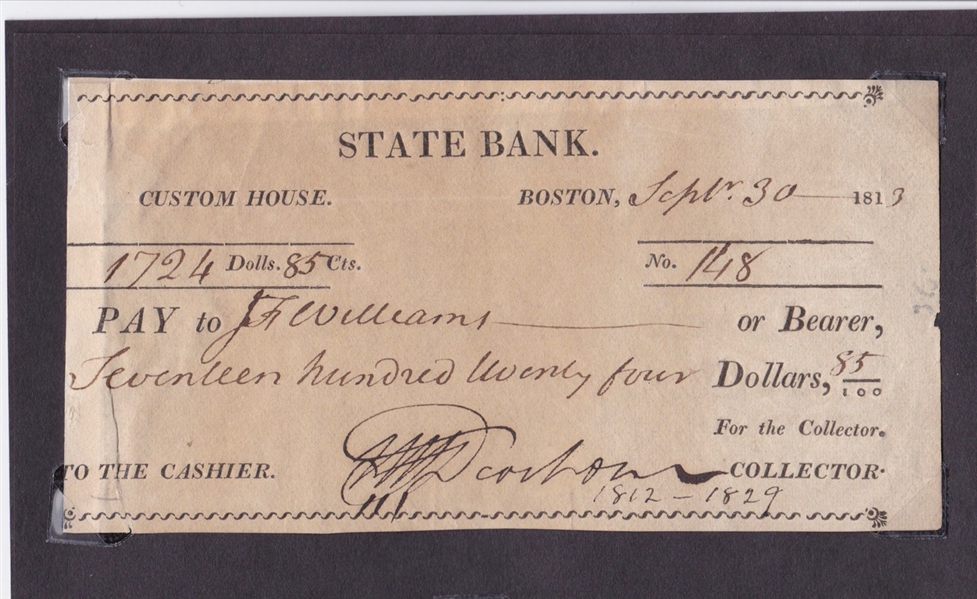 STATE BANK.
CUSTOM HOUSE. BOSTON, Septr. 30 1813
1724 Dolls. 85 Cts. No. 148
PAY to J F Williams or Bearer,
Seventeen hundred twenty four Dollars, 85/100
For the Collector.
TO THE CASHIER. COLLECTOR.
1812 - 1829